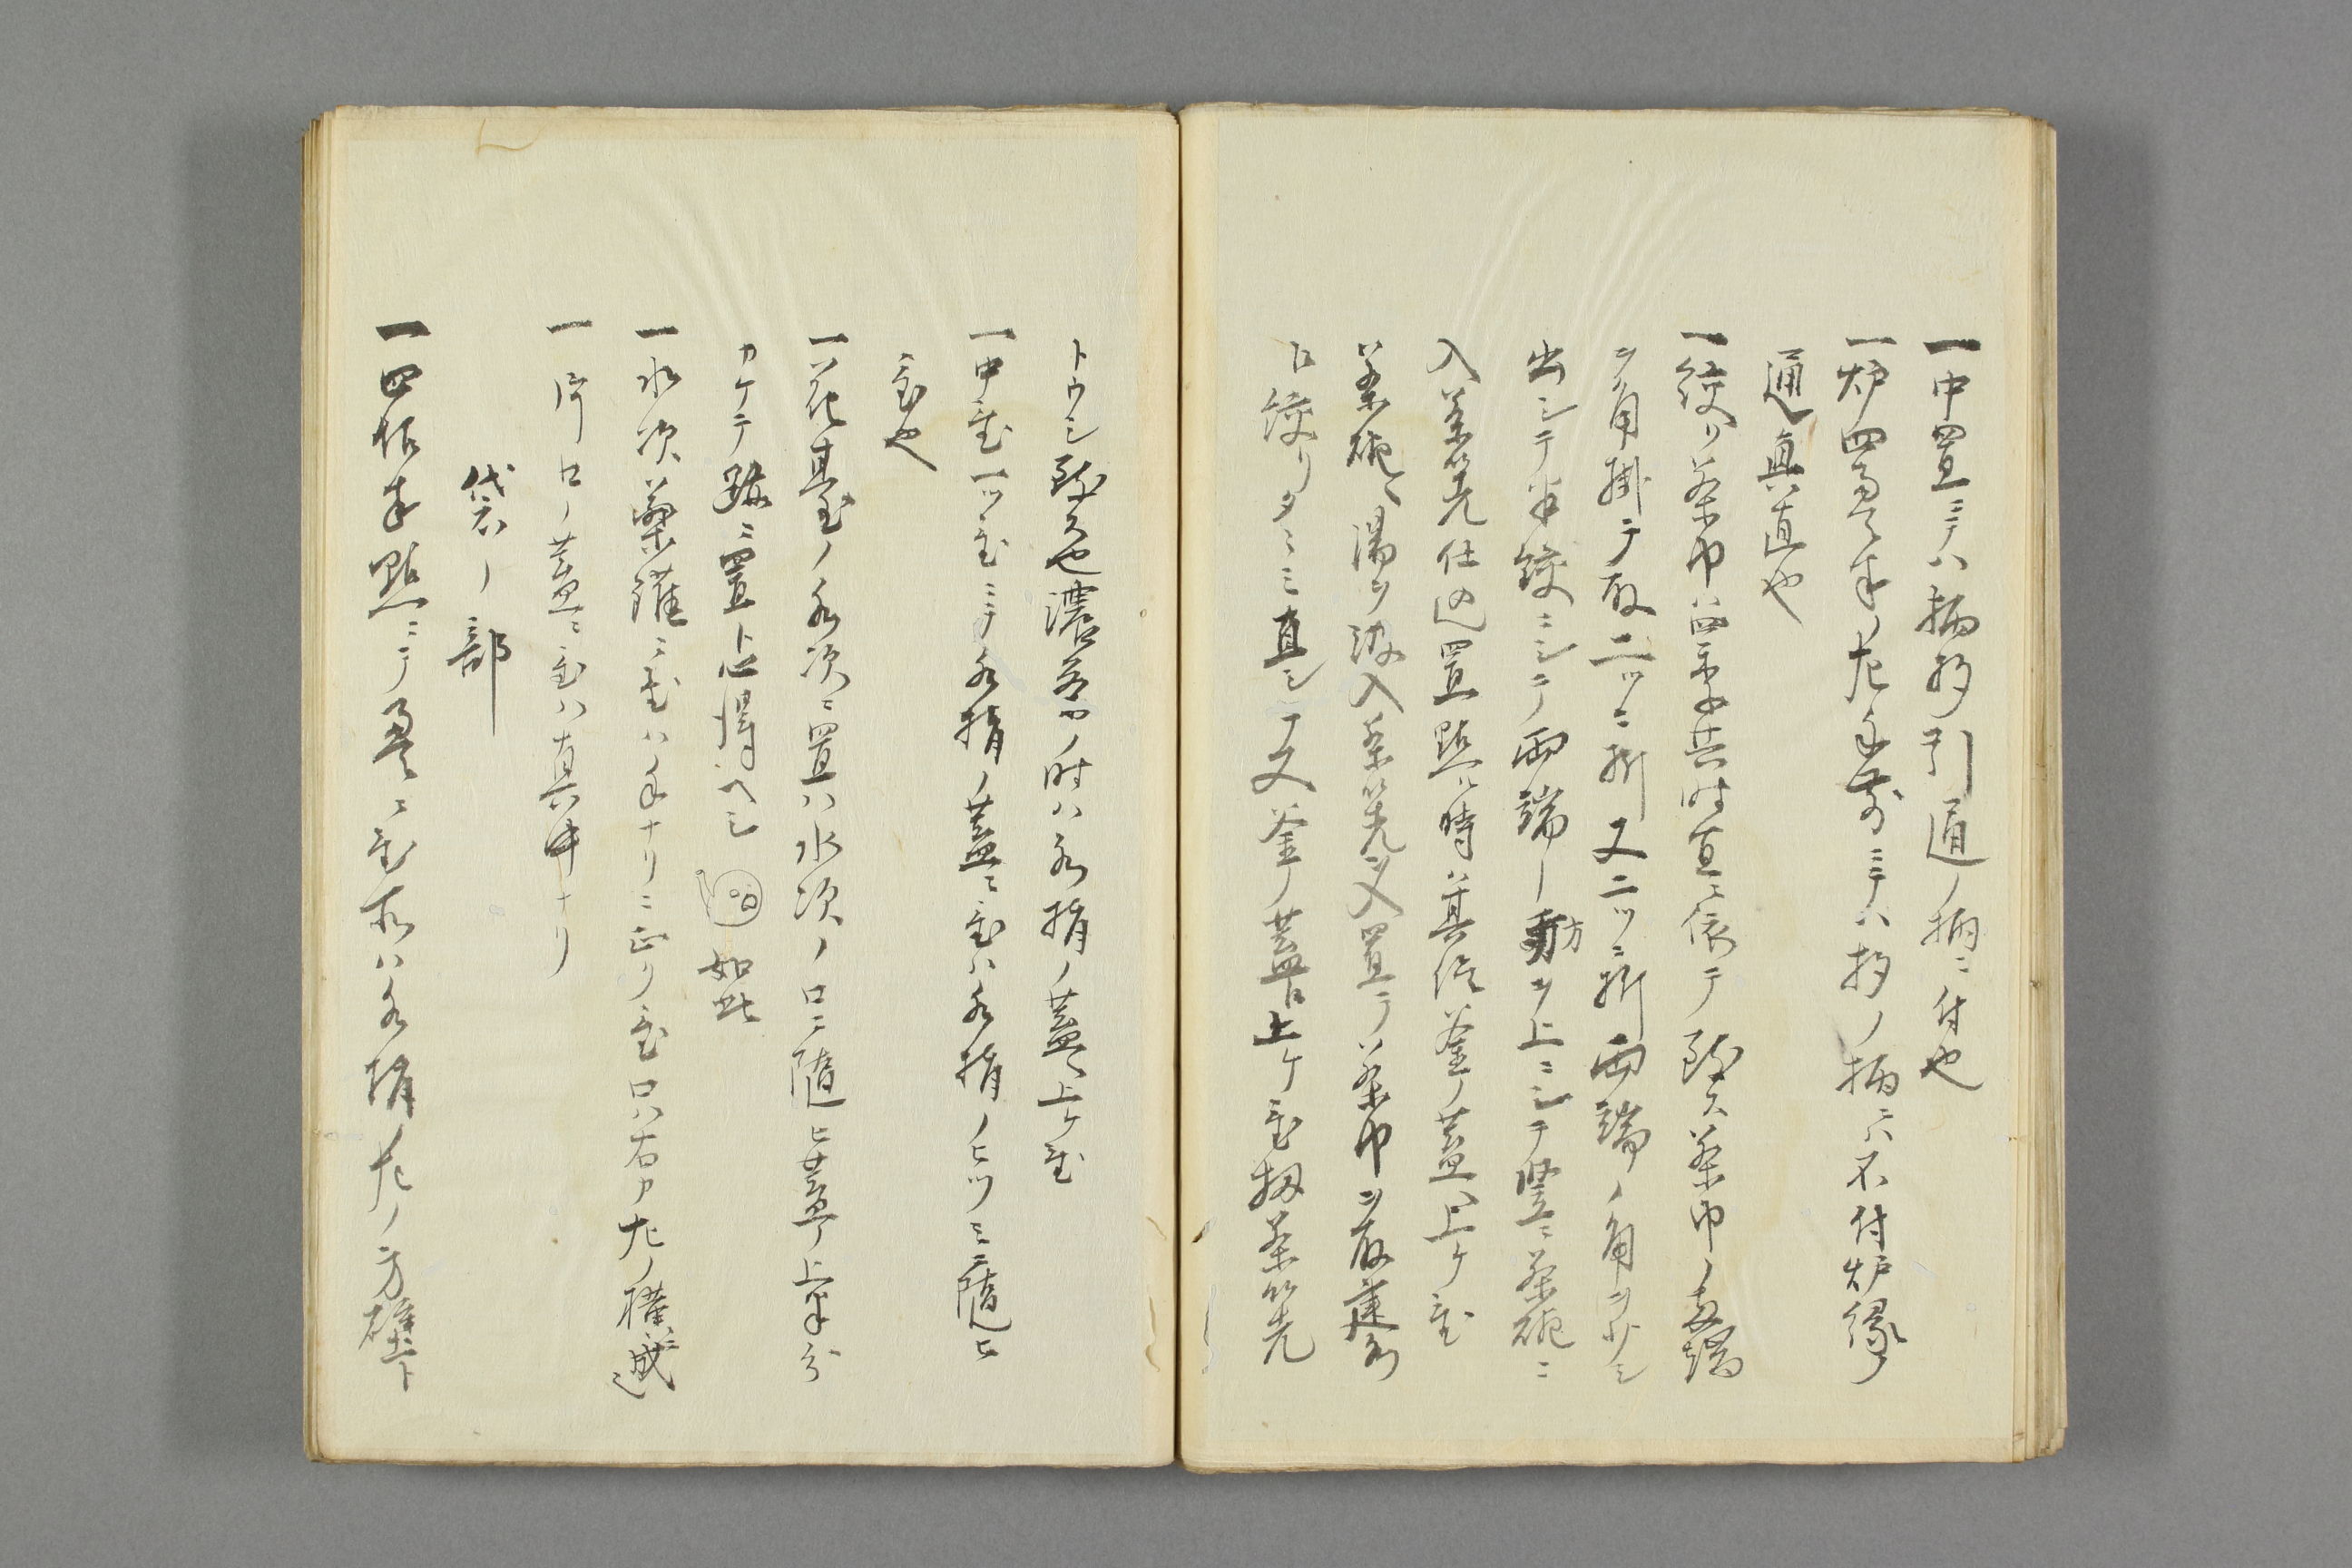 一中置ニテハ柄杓引通ノ柄ニ付也
一炉四畳半左手前ニテハ杓ノ柄ニハ不付炉縁ノ
通真直也
一絞リ茶巾ハ四季共時宜ニ依テ致ス茶巾ノ両端
ヲ角掛テ取二ツニ折又二ツニ折両端ノ角ヲ少シ
出シテ半絞ニシテ両端ノ方ヲ上ニシテ竪ニ茶碗ニ
入茶筅仕込置點ル時ハ其侭釜ノ蓋ヘ上ケ置
茶碗ヘ湯ヲ汲入茶筅ヲ入置テ茶巾ヲ取
絞リタヽミ直シテ又釜ノ蓋ヘ上ケ置扨茶筅
トウシ致ス也濃茶ノ時ハ水指ノ蓋ヘ上ケ置
一中置一ツ置ニテ水指ノ蓋ニ置ハ水指ノヒツミニ随ヒ
置也
一花臺ノ水次ニ置ハ水次ノ口ニ随ヒ蓋ノ上半分
カケテ跡ニ置ト心得ヘシ 如此
一水次薬鑵ニ置ハ手ナリニ置口ハ右カ左ノ横ニ成
一片口ノ蓋ニ置ハ真中ナリ
袋ノ部
一四帖半點ニテ畳ニ置所ハ水指左ノ方壁下